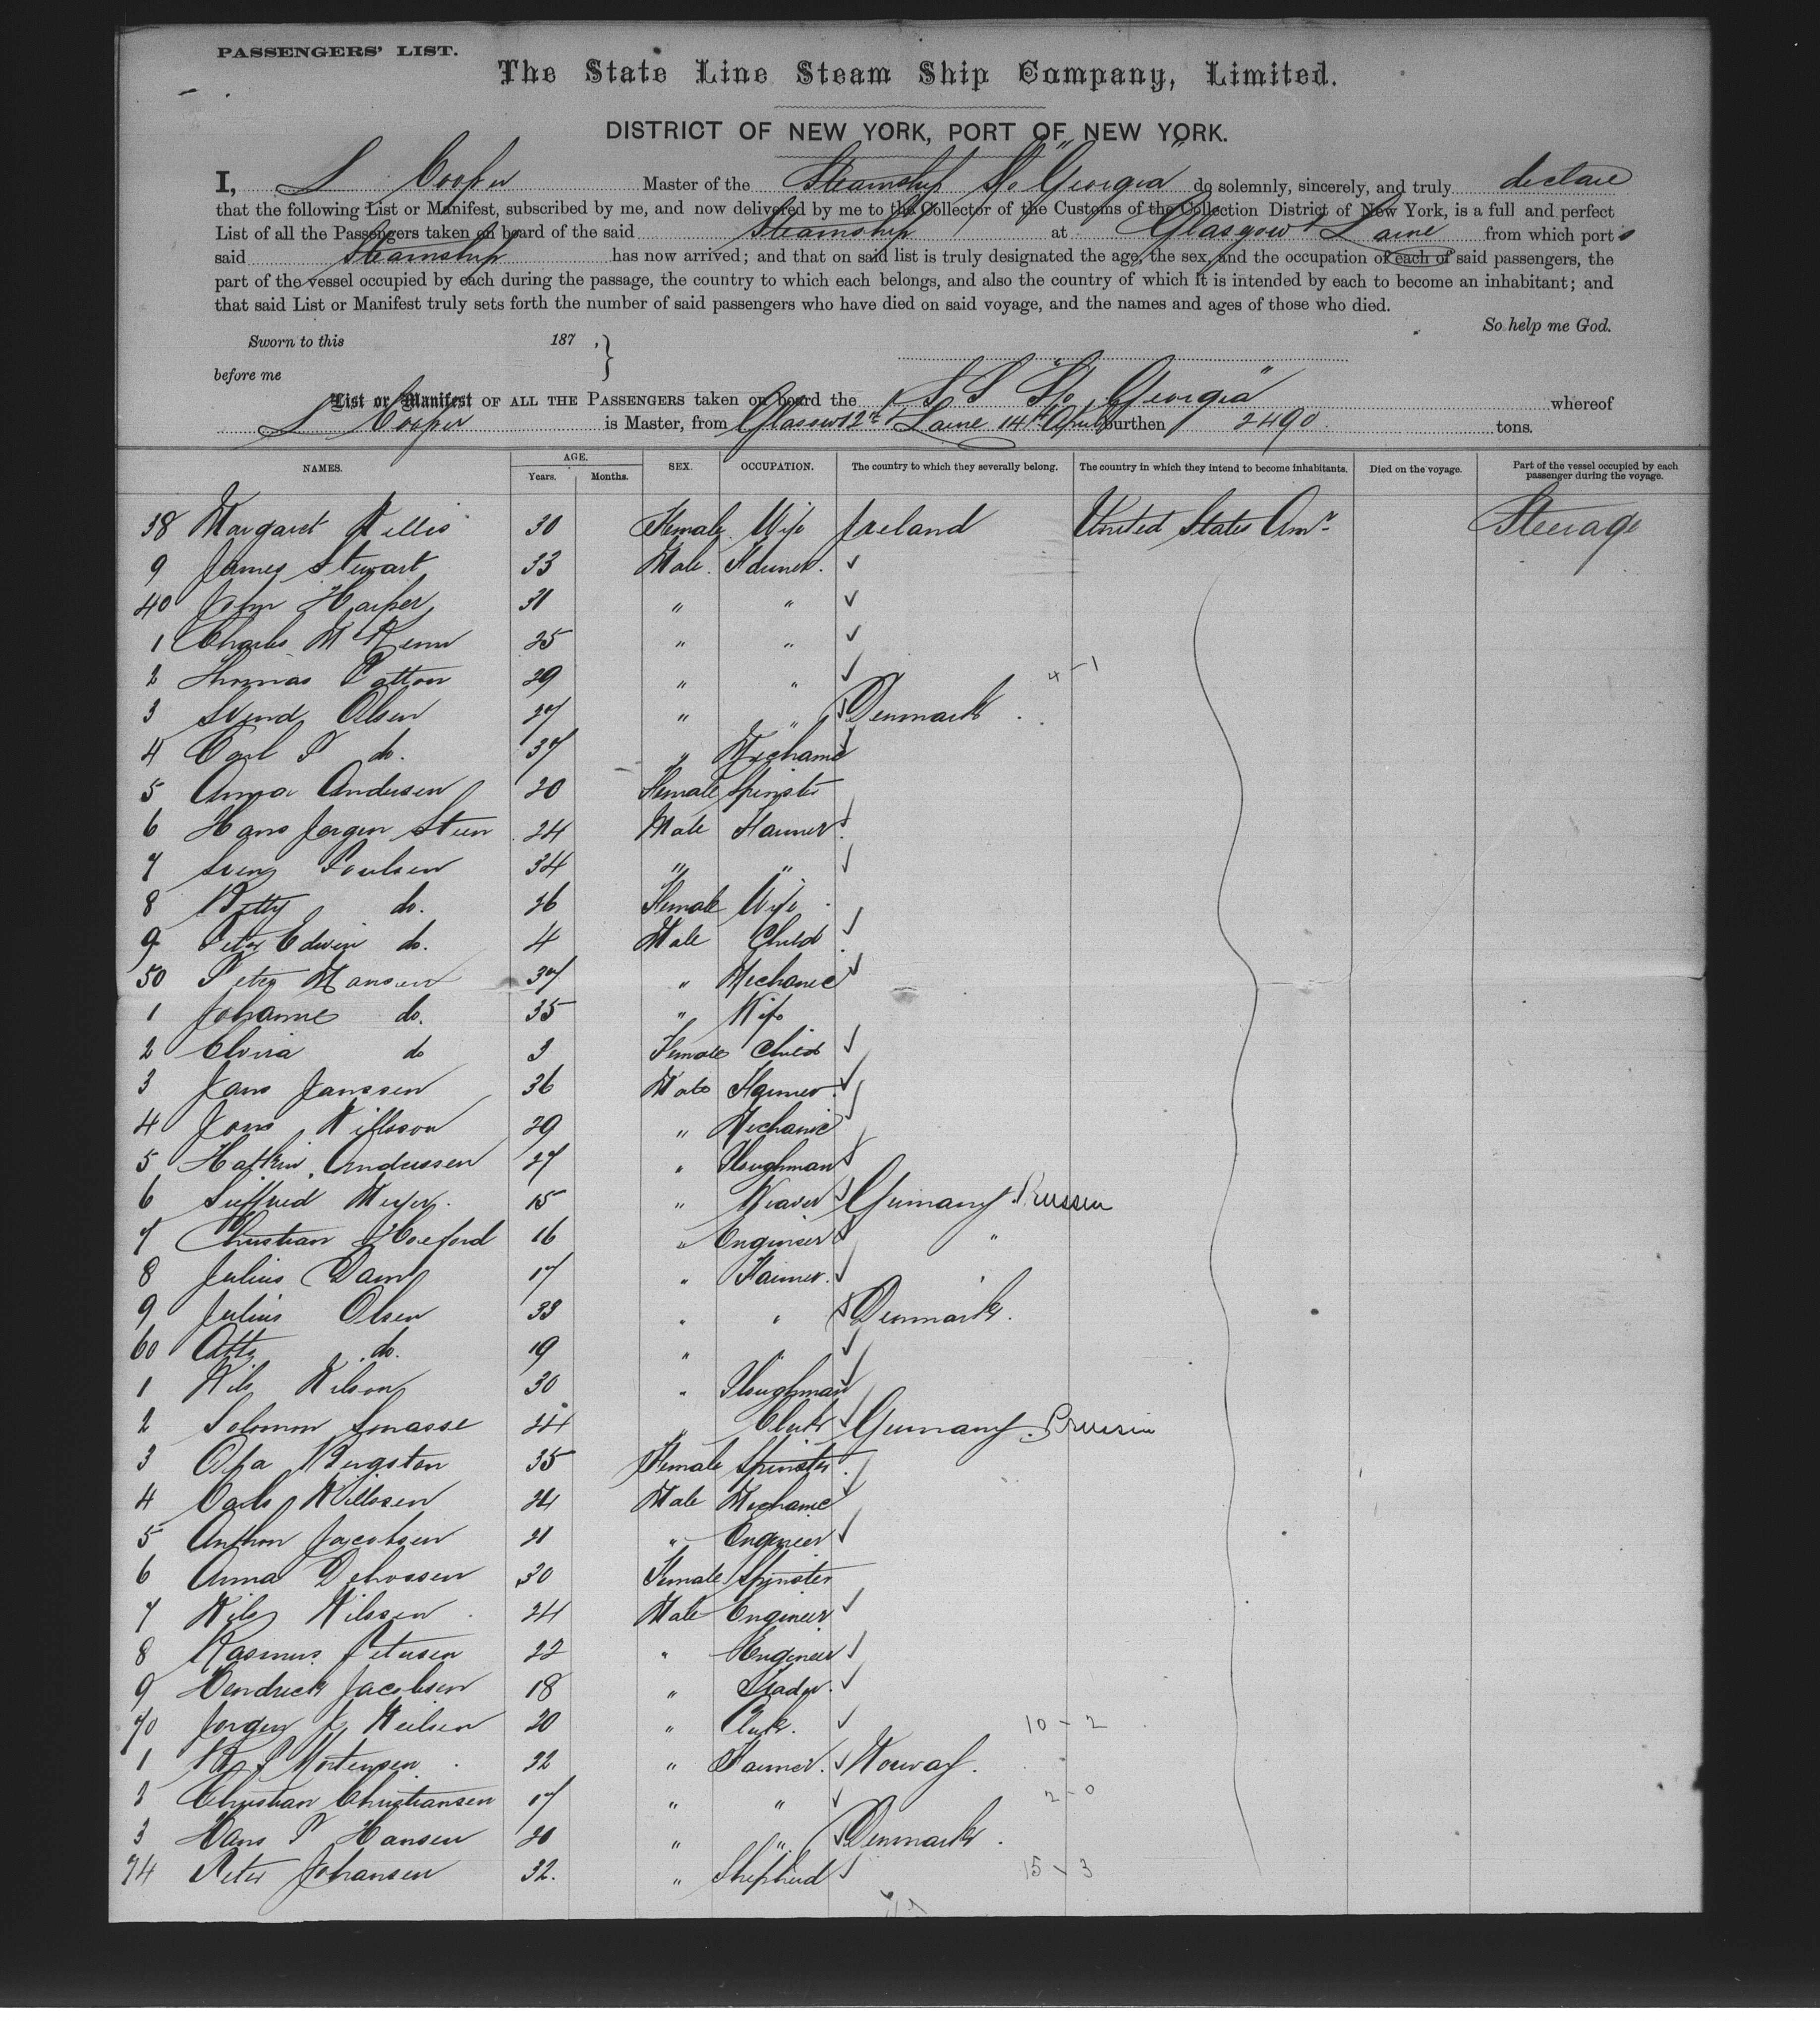 PASSENGERS' LIST.
The State Line Steam Ship Company, Limited.
DISTRICT OF NEW YORK, PORT OF NEW YORK.
I, L Cooper Master of the Steamship "So Georgia" do solemnly, sincerely, and truly declare
that the following List or Manifest, subscribed by me, and now delivered by me to the Collector of the Customs of the Collection District of New York, is a full and perfect
List of all the Passengers taken on board of the said Steamship at Glasgow & Larne from which ports
said Steamship has now arrived; and that on said list is truly designated the age, the sex, and the occupation of each of said passengers, the
part of the vessel occupied by each during the passage, the country to which each belongs, and also the country of which it is intended by each to become an inhabitant; and
that said List or Manifest truly sets forth the number of said passengers who have died on said voyage, and the names and ages of those who died.
So help me God.
Sworn to this 187 ,
before me
List or Manifest OF ALL THE PASSENGERS taken on board the S S "So Georgia" whereof
L Cooper is Master, from Glasgow 12th Larne 14th April burthen 2490 tons.
NAMES. AGE. Years. Months. SEX. OCCUPATION. The country to which they severally belong. The country in which they intend to become inhabitants. Died on the voyage. Part of the vessel occupied by each passenger during the voyage.
38 Margaret Willis 30 Female Wife Ireland United States Amr Steerage
9 James Stewart 33 Male Farmer
40 John Harper 31 " "
1 Charles 25 " "
2 Thomas Patton 29 " "
3 Svend Olsen 27 " " Denmark 4-1
4 Carl P do. 37 " Mechanic
5 Anna Andersen 20 Female Spinster
6 Hans Jorgen Steen 24 Male Farmer
7 Poulsen 34 " "
8 Betty do. 26 Female Wife
9 Peter Edwin do. 4 Male Child
50 Peter Hansen 37 " Mechanic
1 Johanne do. 35 " Wife
2 Elvira do 3 Female Child
3 Jans Janssen 36 Male Farmer
4 Jons 29 " Mechanic
5 Anderssen 27 " Ploughman
6 Meyer 15 " Weaver Germany Prussia
7 Christian 16 " Engineer "
8 Julius Dam 17 " Farmer
9 Julius Olsen 33 " " Denmark.
60 do. 19 " "
1 Nils Nilson 30 " Ploughman
2 Solomon 24 " Clerk Germany Prussia
3 35 Female Spinster
4 Carl Nillssen 24 Male Mechanic
5 Anthon Jacobsen 21 " Engineer
6 Anna 30 Female Spinster
7 Nils Nilssen 24 Male Engineer
8 Rasmus Petersen 22 " Engineer
9 Hendrick Jacobsen 18 " Trader
70 Jorgen J Neilsen 20 " Clerk. 10-2
1 Mortensen 32 " Farmer. Norway.
2 Christian Christiansen 17 " " 2-0
3 Hans P Hansen 20 " " Denmark.
74 Peter Johansen 32. " Shepherd 15-3